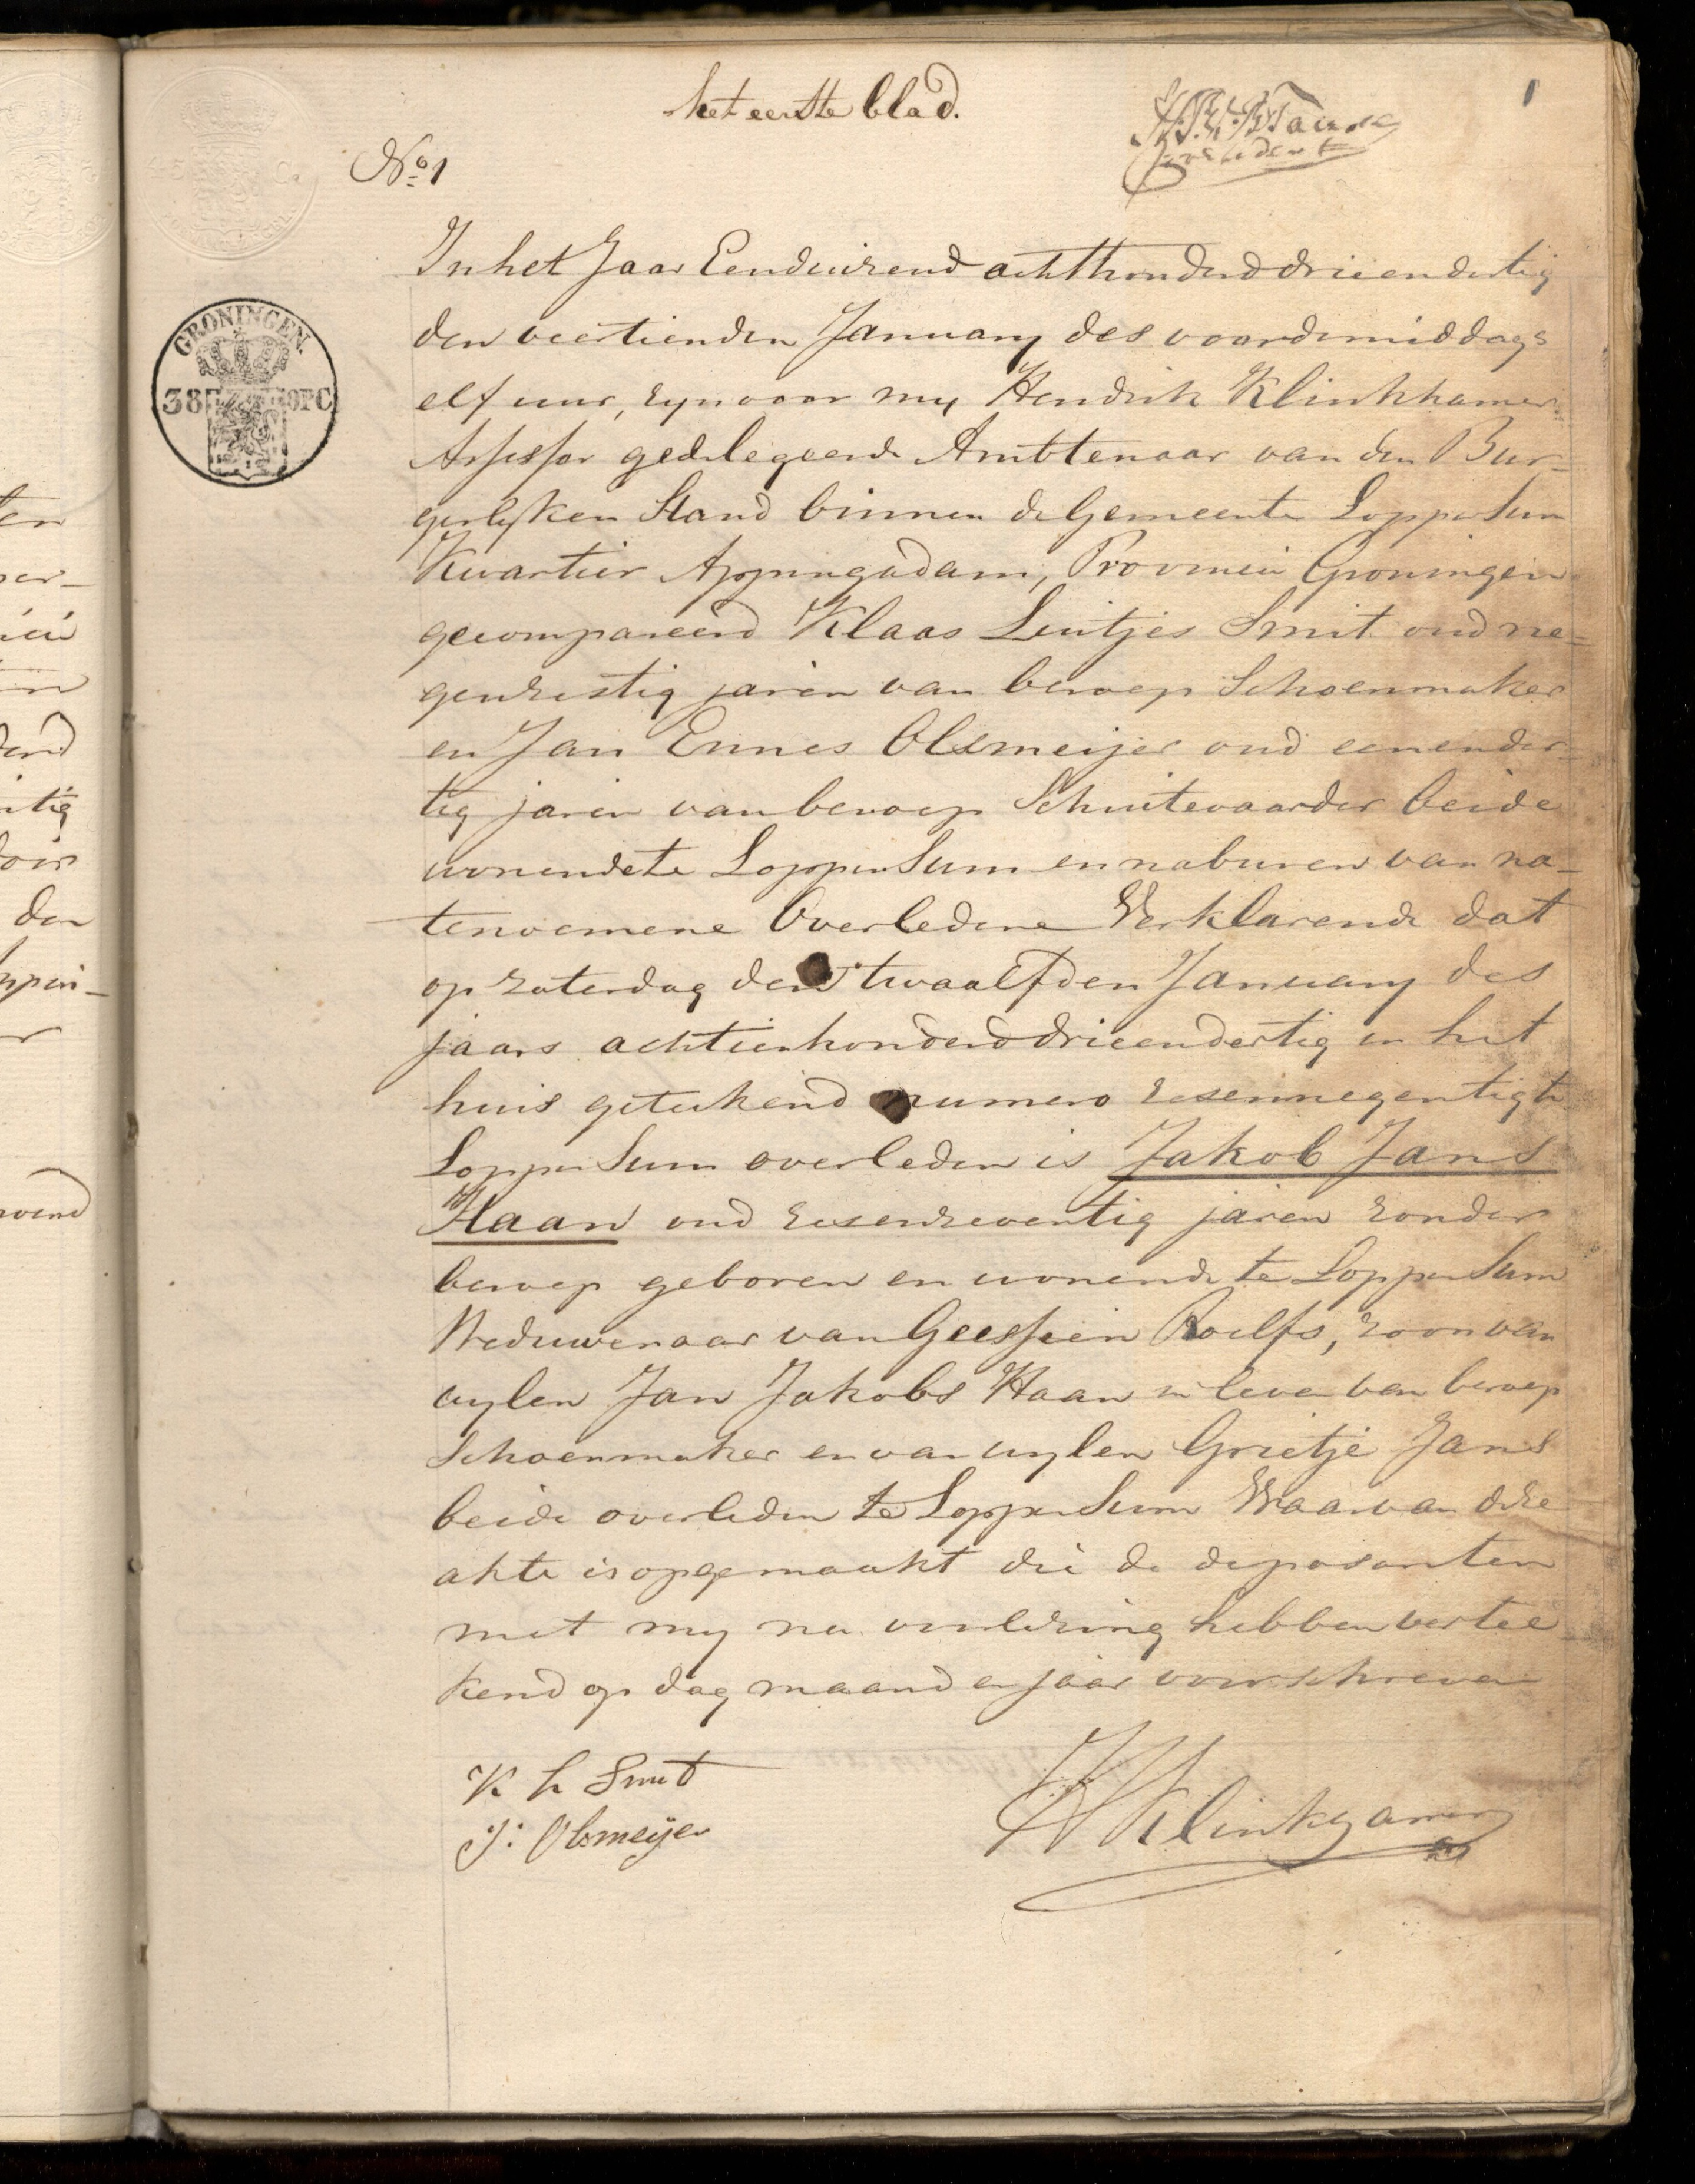 het eerste blad.
1
No 1
In het Jaar Eenduizend achthonderd drieendertig
den veertienden January des voordemiddags
elf uur, zyn voor my Hendrik Klinkhamer
Assessor gedelegeerde Ambtenaar van den Bur-
gerlyken Stand binnen de Gemeente Loppersum
Kwartier Appingadam, Provincie Groningen
gecompareerd Klaas Luitjes Smit oud ne-
genzestig jaren van beroep Schoenmaker
en Jan Ennes Olsmeijer oud eenender-
tig jaren van beroep Schuitevaarder beide
wonende te Loppersum en naburen van na-
tenoemene Overledene Verklarende dat
op zaterdag den twaalfden January des
jaars achttienhonderd drieendertig in het
huis getekend numero zesennegentig te
Loppersum overleden is Jakob Jans
Haan oud zesenzeventig jaren zonder
beroep geboren en wonende te Loppersum
Weduwenaar van Geessien Roelfs, zoon van
wylen Jan Jakobs Haan in leven van beroep
Schoenmaker en van wylen Grietje Jans
beide overleden te Loppersum Waarvan deze
akte is opgemaakt die de deposanten
met my na voorlezing hebben vertee
kend op dag maand en jaar voorschreven
K L Smit
J: Olsmeijer
H Klinkhamer
GRONINGEN.
38 OPC